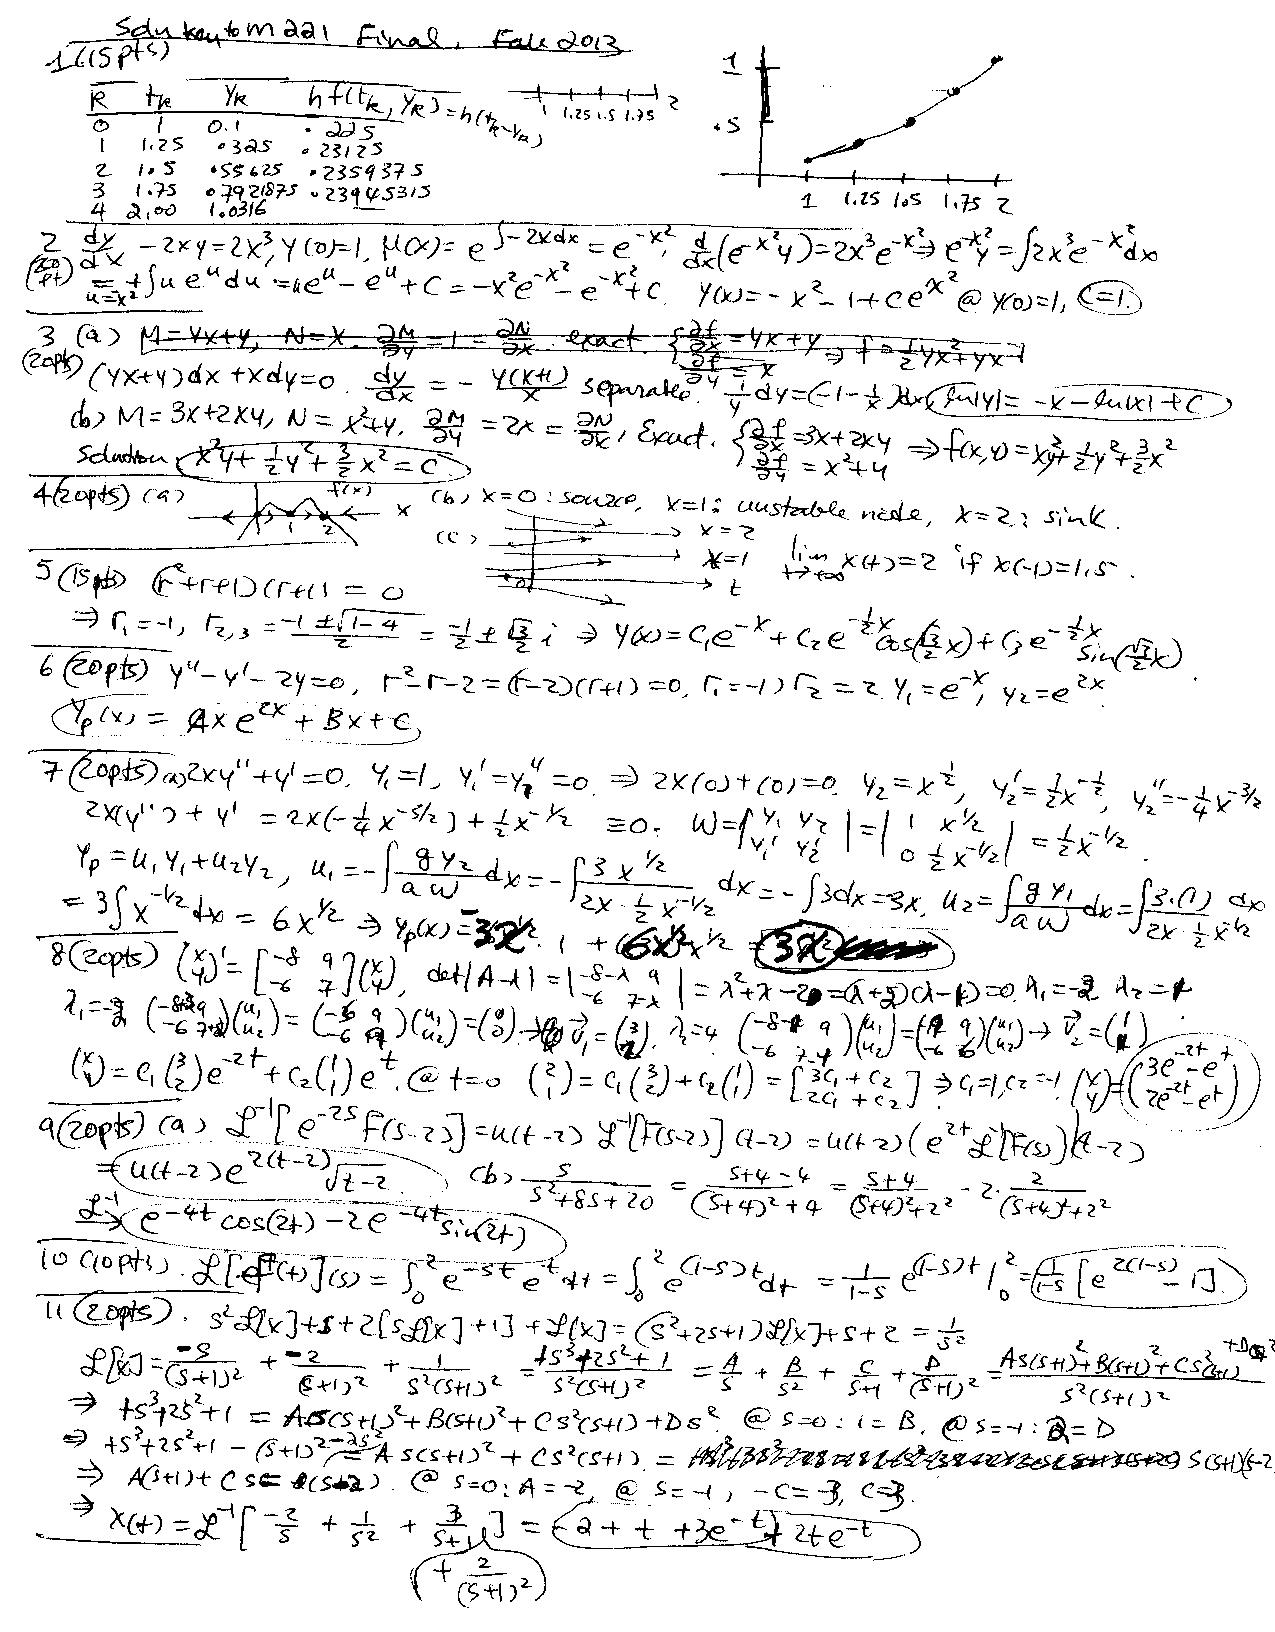 Soln key to M221 Final, Fall 2013
1 (15pts)
k tk yk hf(tk, yk) = h(tk-yk) 1 1.25 1.5 1.75 2
0 1 0.1 .225
1 1.25 .325 .23125
2 1.5 .55625 .2359375
3 1.75 0.7921875 .23945315
4 2.00 1.0316
1 .5 1 1.25 1.5 1.75 2
2 dy/dx - 2xy = 2x³, y(0)=1, μ(x) = e^∫-2xdx = e^-x², d/dx(e^-x² y) = 2x³e^-x² ⇒ e^-x² y = ∫2x³e^-x² dx
(20pt) = +∫u e^u du = ue^u - e^u + C = -x²e^-x² - e^-x² + C. y(x) = -x² - 1 + Ce^x² @ y(0)=1, C=1.
u=x²
3 (a) M = yx+y, N = x. ∂M/∂y = 1 = ∂N/∂x exact. {∂f/∂x = yx+y, ∂f/∂y = x ⇒ f = 1/2 yx² + yx
(20pts) (yx+y)dx + xdy = 0. dy/dx = - y(x+1)/x separable. 1/y dy = (-1 - 1/x)dx, ln|y| = -x - ln|x| + C
(b) M = 3x+2xy, N = x²+y. ∂M/∂y = 2x = ∂N/∂x, Exact. {∂f/∂x = 3x+2xy, ∂f/∂y = x²+y ⇒ f(x,y) = x²y + 1/2 y² + 3/2 x²
Solution x²y + 1/2 y² + 3/2 x² = C
4 (20pts) (a) f(x) 1 2 x (b) x=0: source, x=1: unstable node, x=2: sink.
(c) x=2 x=1 t lim t→+∞ x(t) = 2 if x(-1) = 1.5.
5 (15pts) (r²+r+1)(r+1) = 0
⇒ r₁ = -1, r₂,₃ = (-1 ± √(1-4))/2 = -1/2 ± √3/2 i ⇒ y(x) = C₁e^-x + C₂e^-1/2x cos(√3/2 x) + C₃e^-1/2x sin(√3/2 x)
6 (20pts) y'' - y' - 2y = 0, r² - r - 2 = (r-2)(r+1) = 0, r₁ = -1, r₂ = 2. y₁ = e^-x, y₂ = e^2x.
yp(x) = Axe^2x + Bx + C
7 (20pts) (a) 2xy'' + y' = 0. y₁ = 1, y₁' = y₁'' = 0. ⇒ 2x(0) + (0) = 0. y₂ = x^1/2, y₂' = 1/2 x^-1/2, y₂'' = -1/4 x^-3/2
2x(y'') + y' = 2x(-1/4 x^-5/2) + 1/2 x^-1/2 ≡ 0. W = |y₁ y₂; y₁' y₂'| = |1 x^1/2; 0 1/2 x^-1/2| = 1/2 x^-1/2.
yp = u₁y₁ + u₂y₂, u₁ = -∫ g y₂/(a W) dx = -∫ 3 x^1/2/(2x · 1/2 x^-1/2) dx = -∫3dx = -3x. u₂ = ∫ g y₁/(a W) dx = ∫ 3·(1)/(2x · 1/2 x^-1/2) dx
= 3∫x^-1/2 dx = 6x^1/2 ⇒ yp(x) = -3x · 1 + (6x^1/2)x^1/2 = 3x
8 (20pts) (x y)' = [-8 9; -6 7](x y), det|A-λ| = |-8-λ 9; -6 7-λ| = λ²+λ-2 = (λ+2)(λ-1) = 0. λ₁ = -2 λ₂ = 1
λ₁ = -2 (-8+2 9; -6 7+2)(u₁ u₂) = (-6 9; -6 9)(u₁ u₂) = (0 0) → v₁ = (3 2). λ = 4 (-8-1 9; -6 7-1)(u₁ u₂) = (-9 9; -6 6)(u₁ u₂) → v₂ = (1 1)
(x y) = c₁(3 2)e^-2t + c₂(1 1)e^t. @ t=0 (2 1) = c₁(3 2) + c₂(1 1) = [3c₁+c₂; 2c₁+c₂] ⇒ c₁=1, c₂=-1 (x y) = (3e^-2t - e^t; 2e^-2t - e^t)
9 (20pts) (a) ℒ⁻¹[e^-2s F(s-2)] = u(t-2) ℒ⁻¹[F(s-2)](t-2) = u(t-2)(e^2t ℒ⁻¹[F(s)])(t-2)
= u(t-2)e^2(t-2) √(t-2) (b) s/(s²+8s+20) = (s+4-4)/((s+4)²+4) = (s+4)/((s+4)²+2²) - 2 · 2/((s+4)²+2²)
ℒ⁻¹→ e^-4t cos(2t) - 2e^-4t sin(2t)
10 (10pts). ℒ[f(t)](s) = ∫₀² e^-st e^t dt = ∫₀² e^(1-s)t dt = 1/(1-s) e^(1-s)t |₀² = 1/(1-s) [e^2(1-s) - 1]
11 (20pts). s²ℒ[x] + s + 2[sℒ[x] + 1] + ℒ[x] = (s²+2s+1)ℒ[x] + s + 2 = 1/s²
ℒ[x] = -s/(s+1)² + -2/(s+1)² + 1/(s²(s+1)²) = (+s³+2s²+1)/(s²(s+1)²) = A/s + B/s² + C/(s+1) + D/(s+1)² = (As(s+1)² + B(s+1)² + Cs²(s+1) + Ds²)/(s²(s+1)²)
⇒ +s³+2s²+1 = As(s+1)² + B(s+1)² + Cs²(s+1) + Ds². @ s=0: 1 = B. @ s=-1: 2 = D
⇒ +s³+2s²+1 - (s+1)² - 2s² = As(s+1)² + Cs²(s+1) = s(s+1)(s-2
⇒ A(s+1) + Cs = (s-2). @ s=0: A = -2, @ s=-1, -C = -3, C=3.
⇒ x(t) = ℒ⁻¹[-2/s + 1/s² + 3/(s+1)] = -2 + t + 3e^-t + 2te^-t
+ 2/(s+1)²